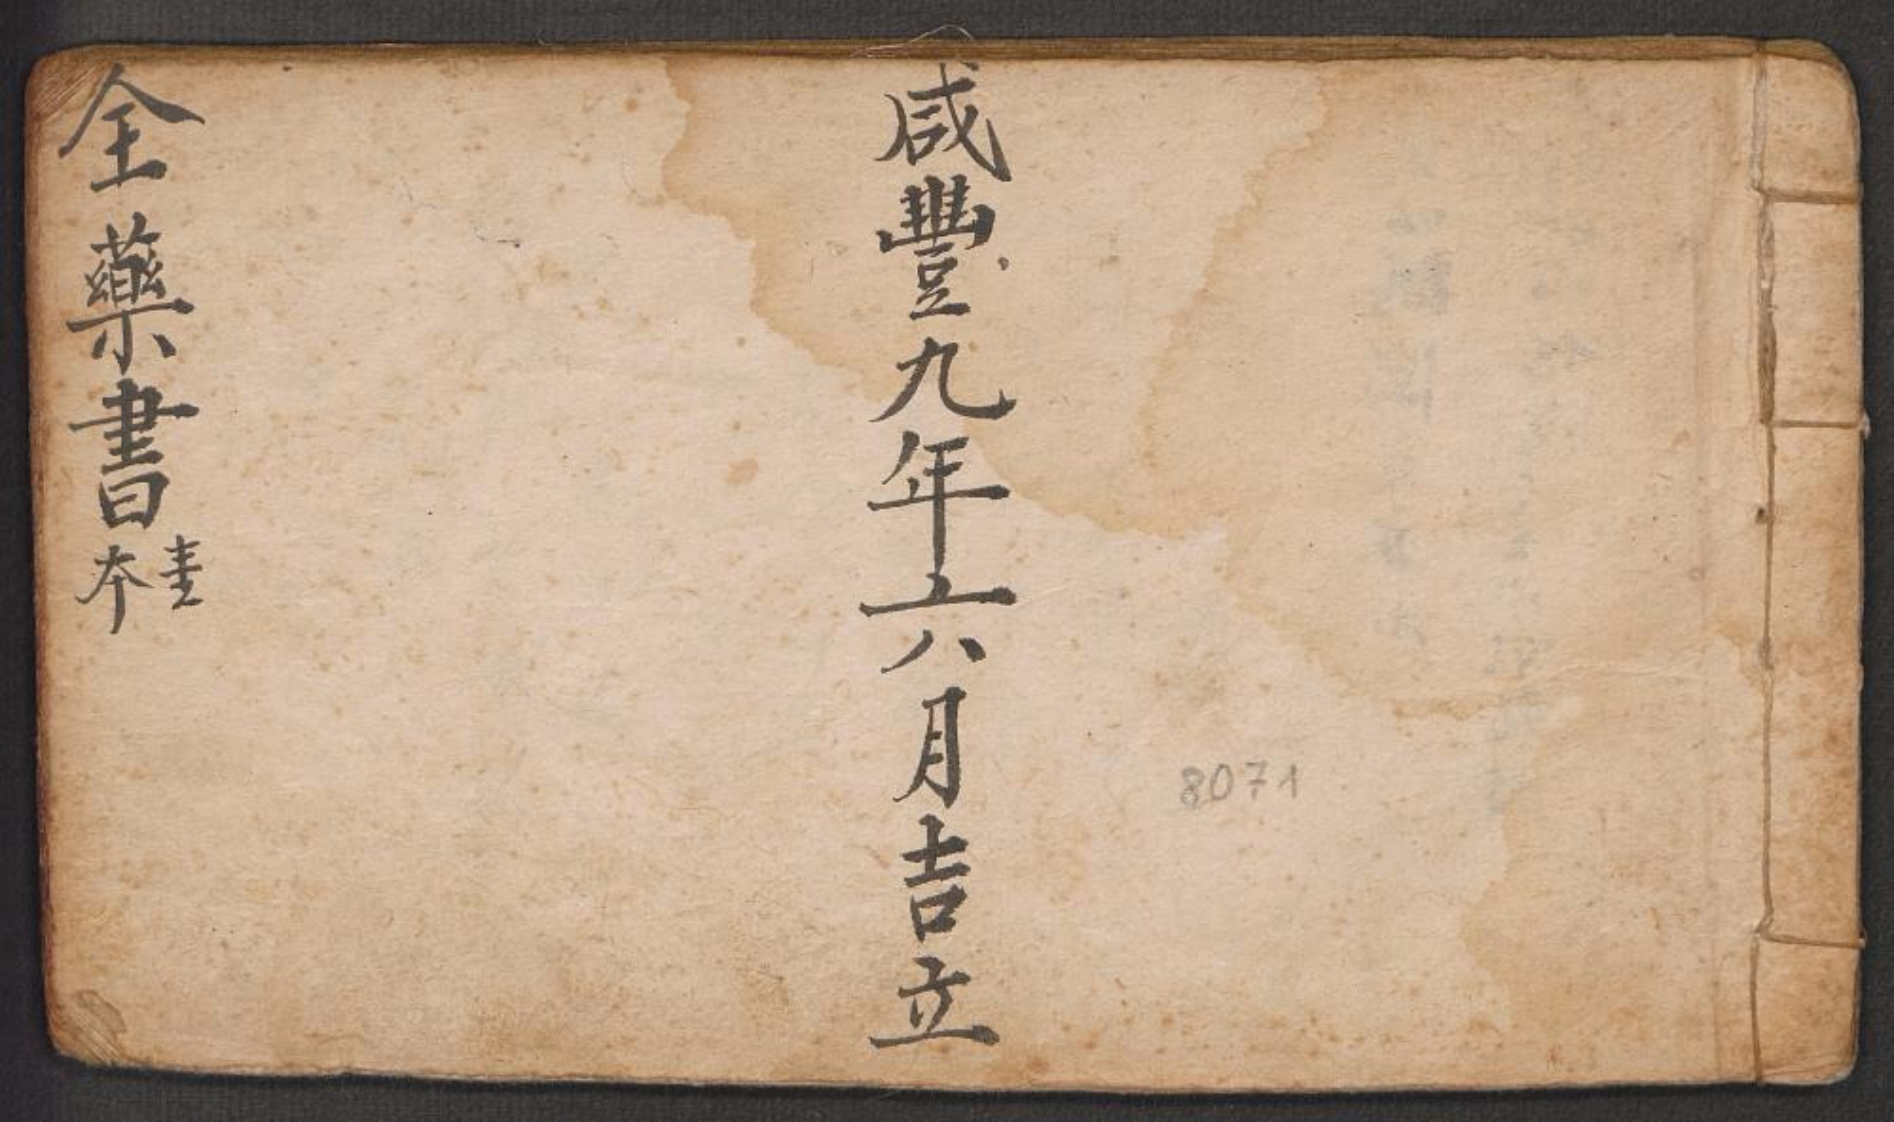 咸豐九年六月吉立
全藥書本
8071